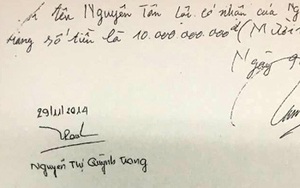 tên Nguyễn Tấn Lộc. có nhận của Ng
Hàng số tiền là 10.000.000.000đ (Mười
Ngày 9
29/11/2014
Nguyễn Thị Quỳnh Trang